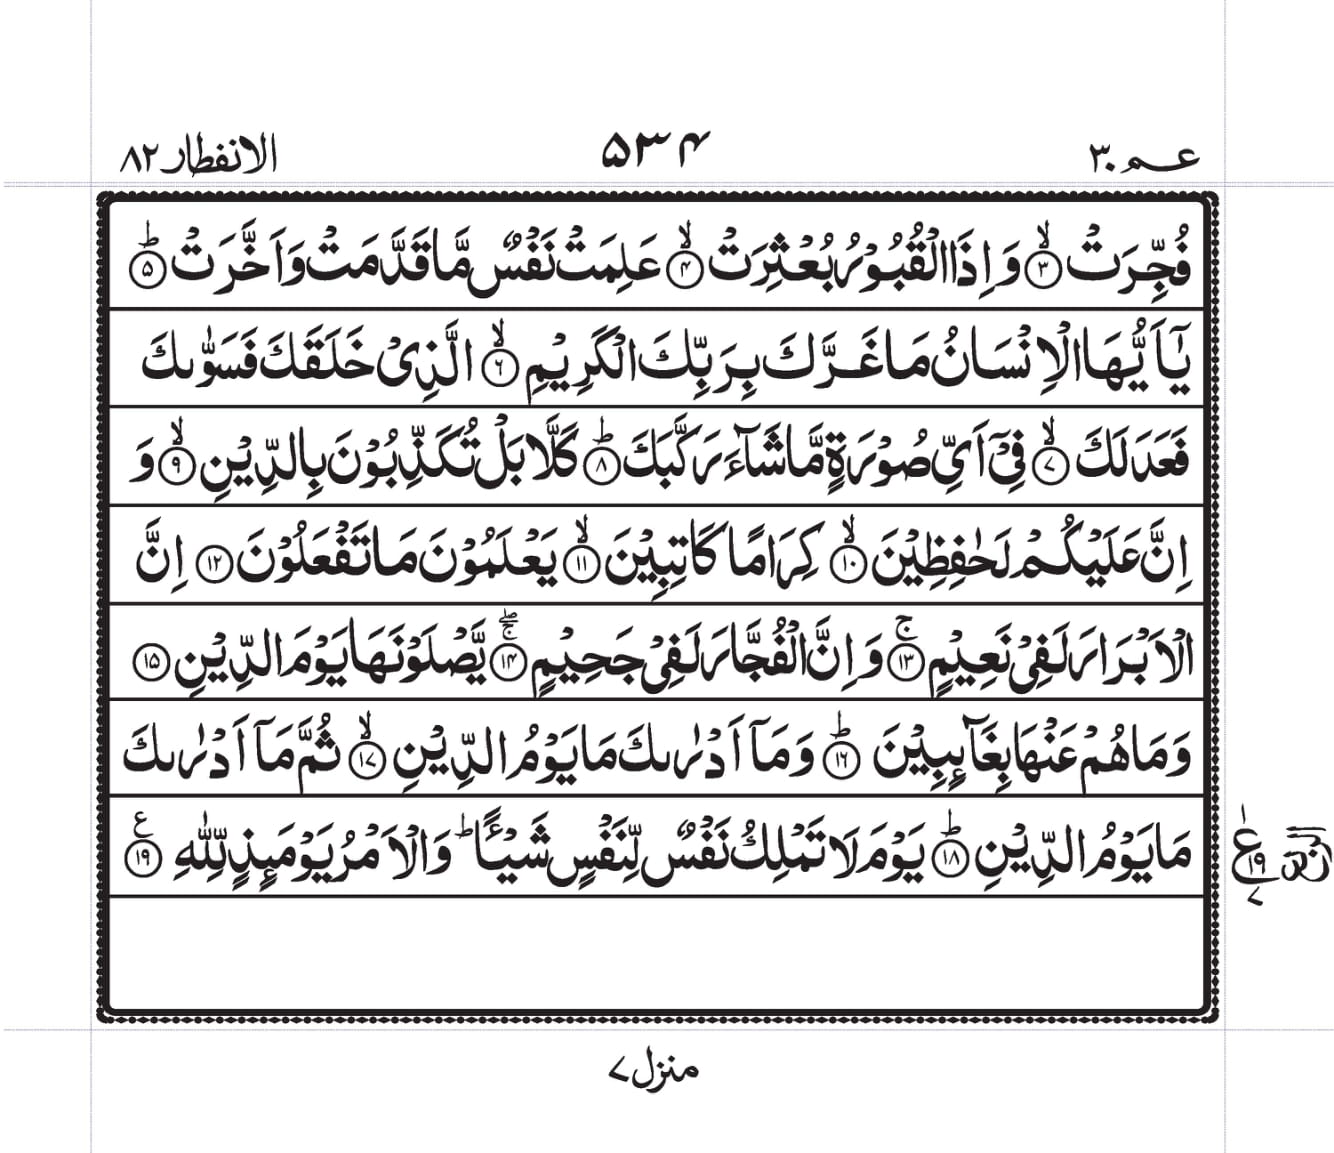 عـم ٣٠
۵۳۴
الانفطار ٨٢
فُجِّرَتْ ۙ﴿۳﴾ وَ اِذَا الْقُبُوْرُ بُعْثِرَتْ ۙ﴿۴﴾ عَلِمَتْ نَفْسٌ مَّا قَدَّمَتْ وَ اَخَّرَتْ ؕ﴿۵﴾
يٰۤاَيُّهَا الْاِنْسَانُ مَا غَرَّكَ بِرَبِّكَ الْكَرِيْمِ ۙ﴿۶﴾ الَّذِىْ خَلَقَكَ فَسَوّٰىكَ
فَعَدَلَكَ ۙ﴿۷﴾ فِىْۤ اَىِّ صُوْرَةٍ مَّا شَآءَ رَكَّبَكَ ؕ﴿۸﴾ كَلَّا بَلْ تُكَذِّبُوْنَ بِالدِّيْنِ ۙ﴿۹﴾ وَ
اِنَّ عَلَيْكُمْ لَحٰفِظِيْنَ ۙ﴿۱۰﴾ كِرَامًا كَاتِبِيْنَ ۙ﴿۱۱﴾ يَعْلَمُوْنَ مَا تَفْعَلُوْنَ ﴿۱۲﴾ اِنَّ
الْاَبْرَارَ لَفِىْ نَعِيْمٍ ۚ﴿۱۳﴾ وَ اِنَّ الْفُجَّارَ لَفِىْ جَحِيْمٍ ۚۖ﴿۱۴﴾ يَّصْلَوْنَهَا يَوْمَ الدِّيْنِ ﴿۱۵﴾
وَ مَا هُمْ عَنْهَا بِغَآئِبِيْنَ ؕ﴿۱۶﴾ وَ مَاۤ اَدْرٰىكَ مَا يَوْمُ الدِّيْنِ ۙ﴿۱۷﴾ ثُمَّ مَاۤ اَدْرٰىكَ
مَا يَوْمُ الدِّيْنِ ؕ﴿۱۸﴾ يَوْمَ لَا تَمْلِكُ نَفْسٌ لِّنَفْسٍ شَيْـًٔا ؕ وَ الْاَمْرُ يَوْمَئِذٍ لِّلّٰهِ ﴿۱۹﴾ ع
ع ١ ١٩ ٧
منزل ٧